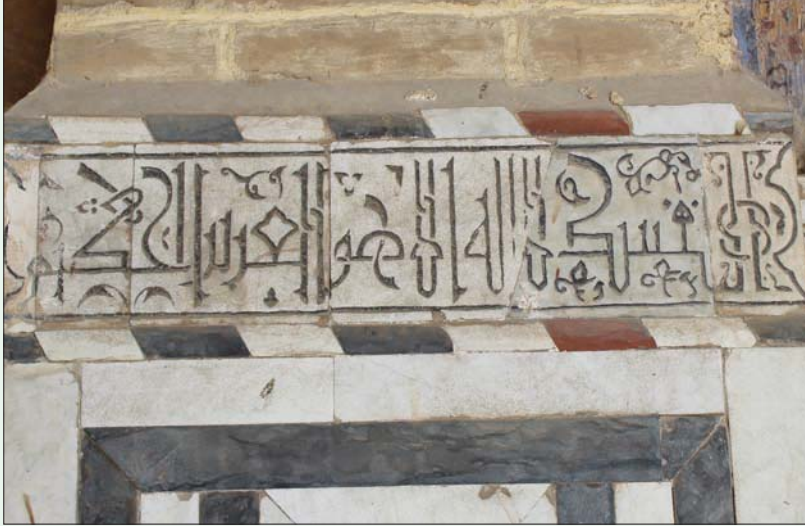 بالقسط لا اله الا هو العزيز الحكيم